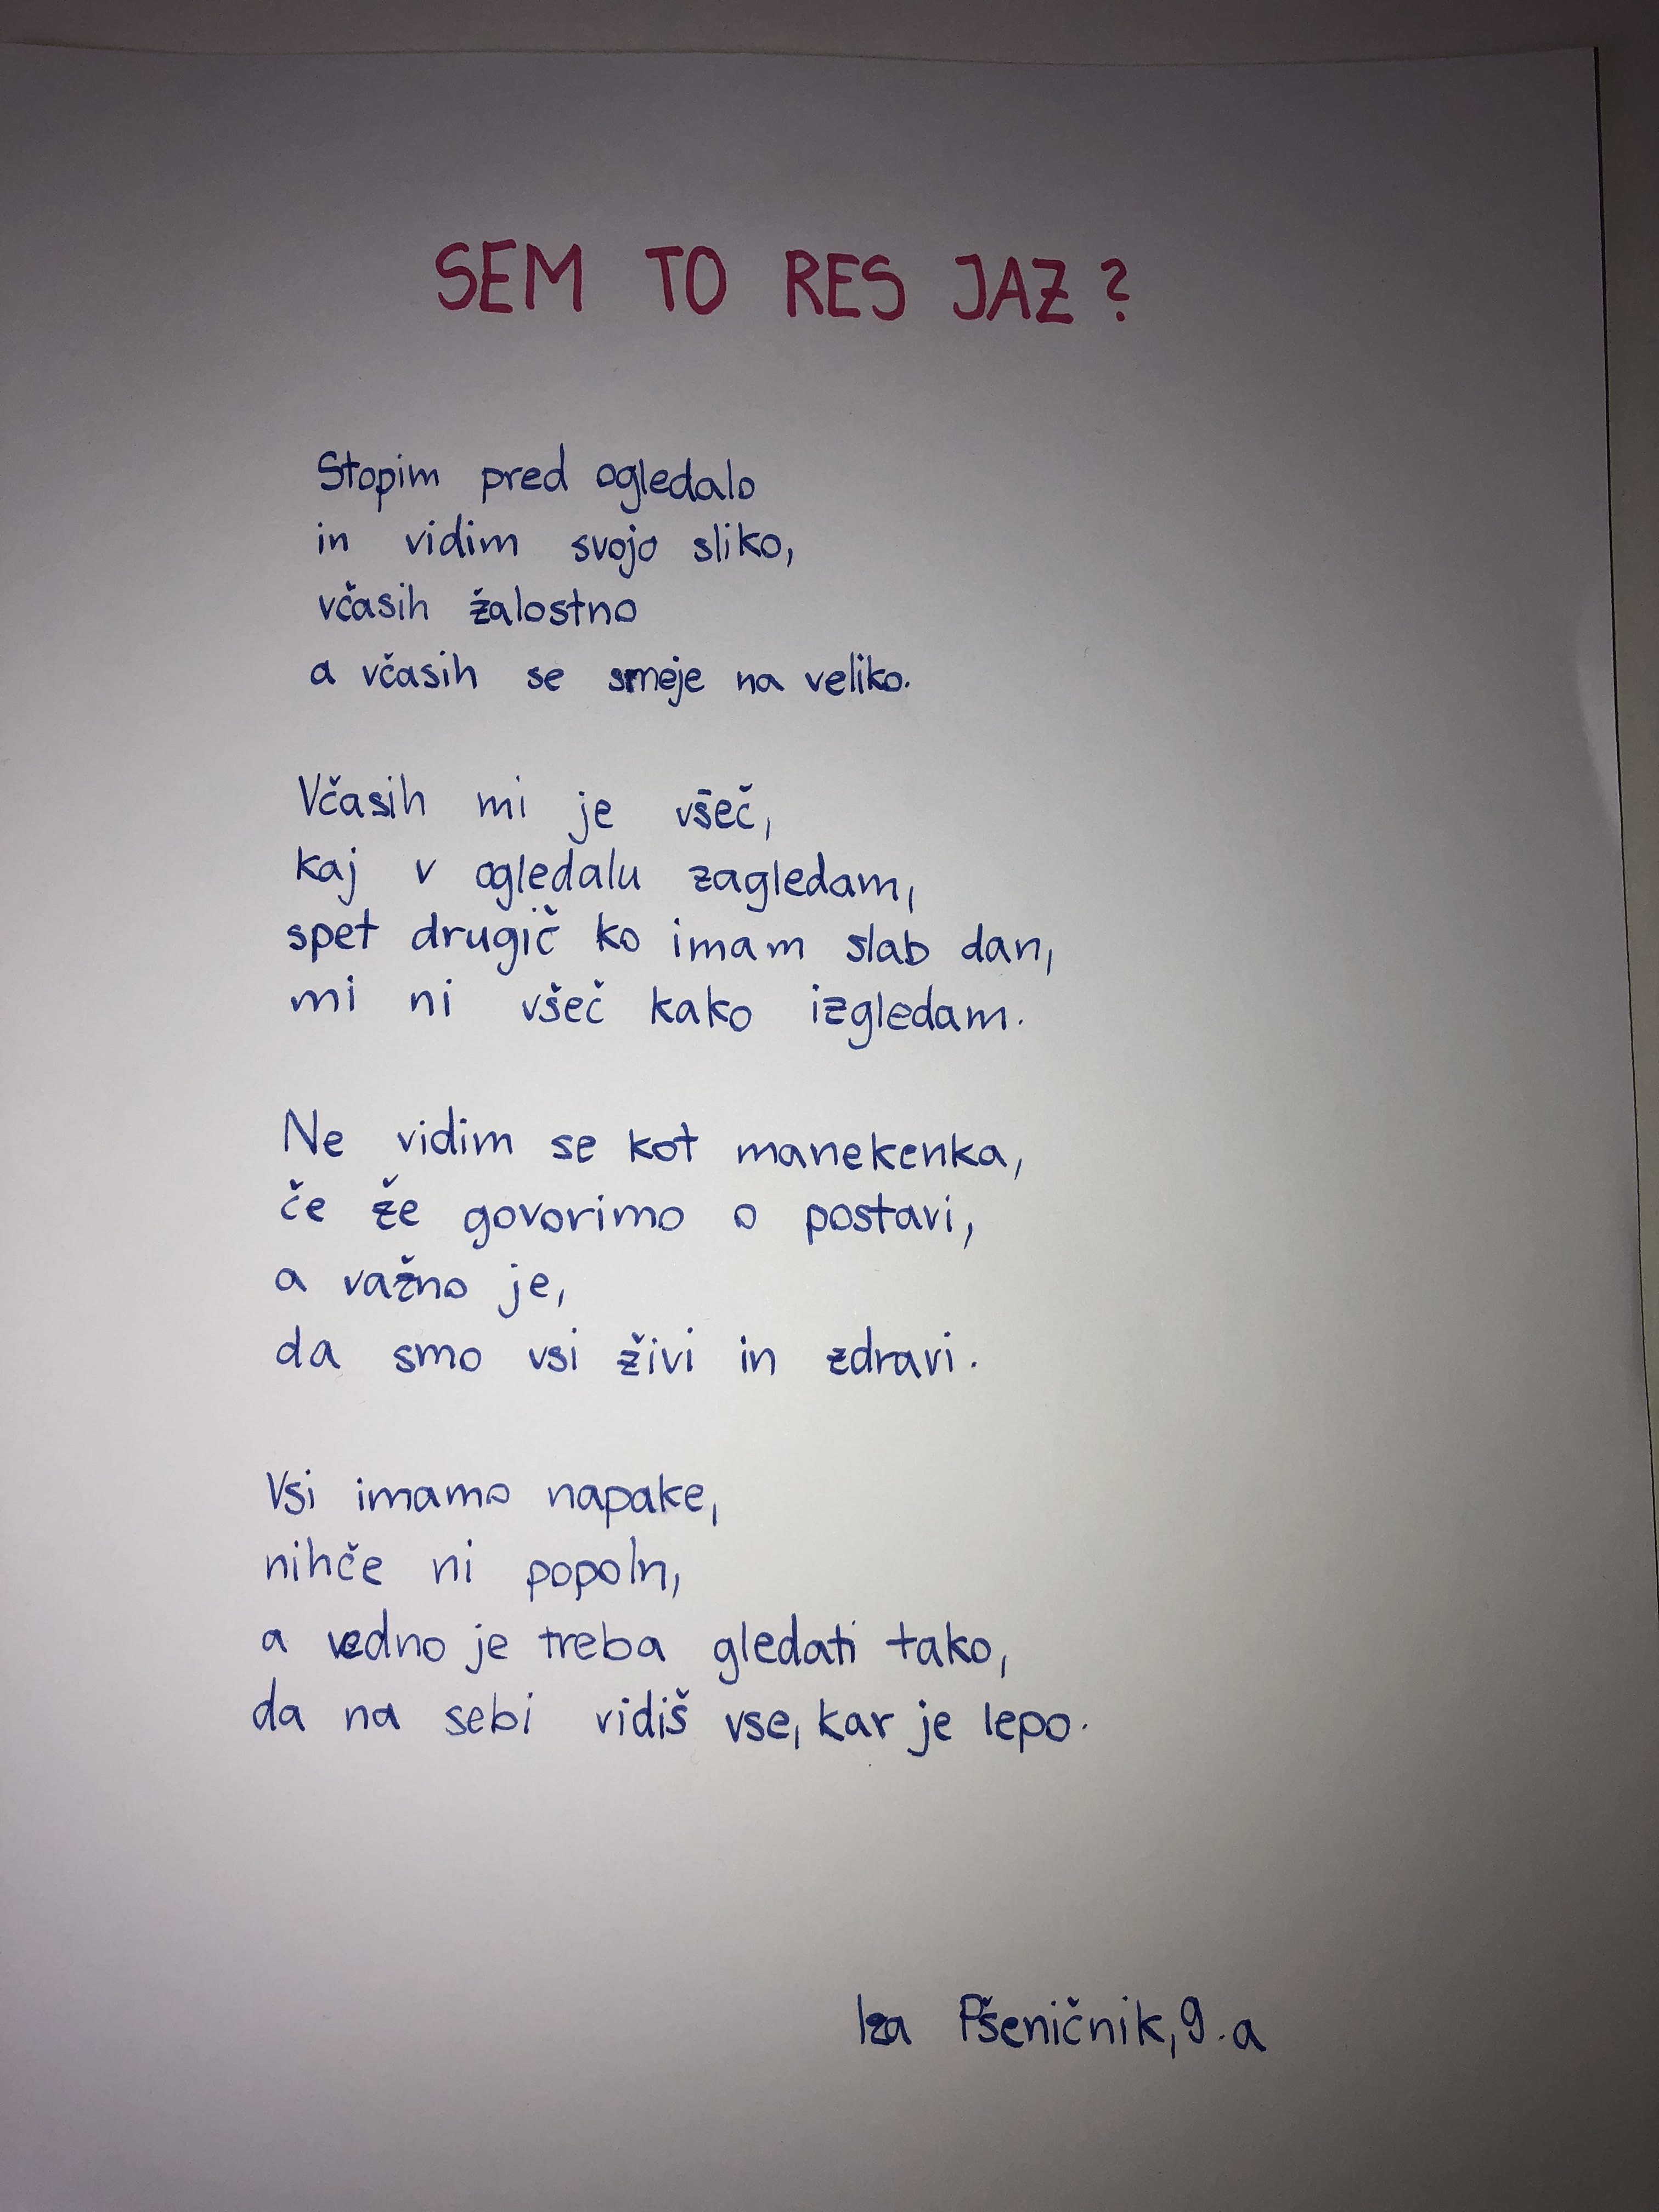 SEM TO RES JAZ?
Stopim pred ogledalo
in vidim svojo sliko,
včasih žalostno
a včasih se smeje na veliko.
Včasih mi je všeč,
kaj v ogledalu zagledam,
spet drugič ko imam slab dan,
mi ni všeč kako izgledam.
Ne vidim se kot manekenka,
če že govorimo o postavi,
a važno je,
da smo vsi živi in zdravi.
Vsi imamo napake,
nihče ni popoln,
a vedno je treba gledati tako,
da na sebi vidiš vse, kar je lepo.
Iza Pšeničnik, 9.a